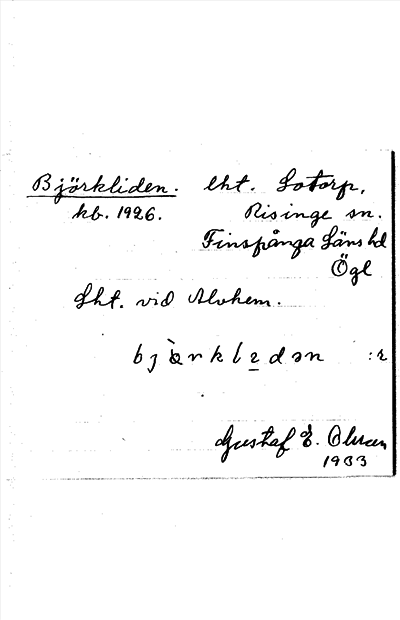 Björkliden. lht. Lotorp,
kb. 1926. Risinge sn.
Finspånga Läns hd
Ögl
Lht. vid Alvhem.
bjœ̀rklıdən :ɛ
Gustaf E. Olson
1933